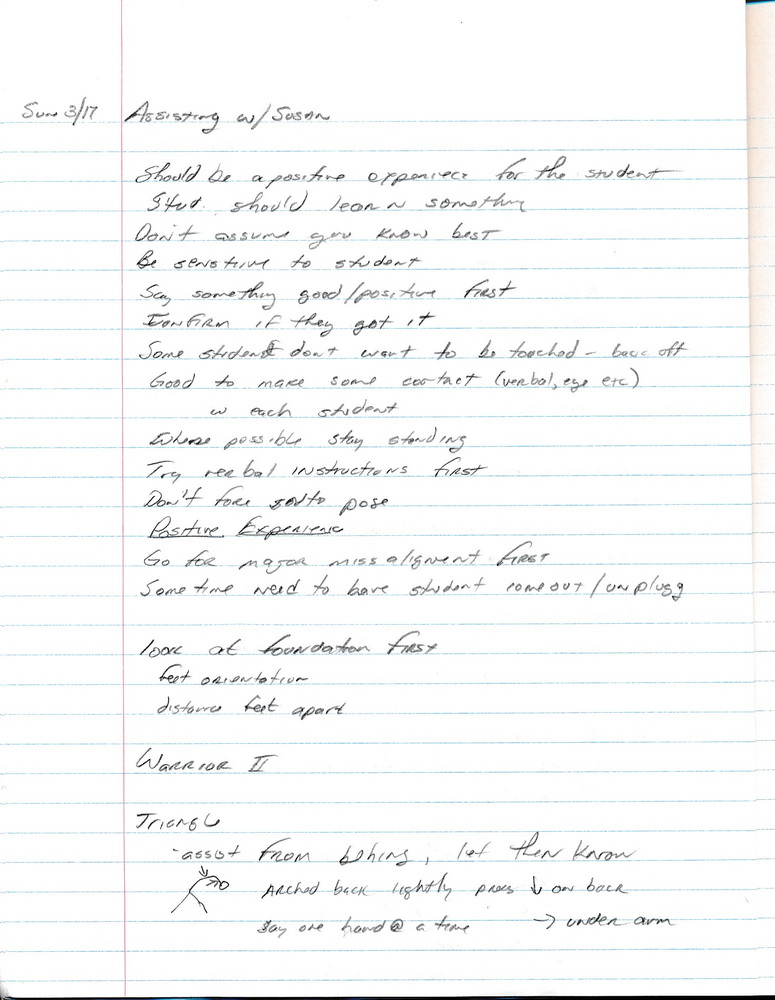 Sun 3/17 Assisting w/ Susan
Should be a positive experience for the student
Stud. should learn something
Don't assume you know best
Be sensitive to student
Say something good/positive first
Confirm if they got it
Some students don't want to be touched - back off
Good to make some contact (verbal, eye etc)
w each student
Where possible stay standing
Try verbal instructions first
Don't force pose
Positive Experience
Go for major missalignment FIRST
Some time need to have student come out / unplugg
look at foundation First
feet orientation
distance feet apart
Warrior II
Triangle
- assist From behind, let them know
Arched back lightly press ↓ on back
Say one hand @ a time → under arm